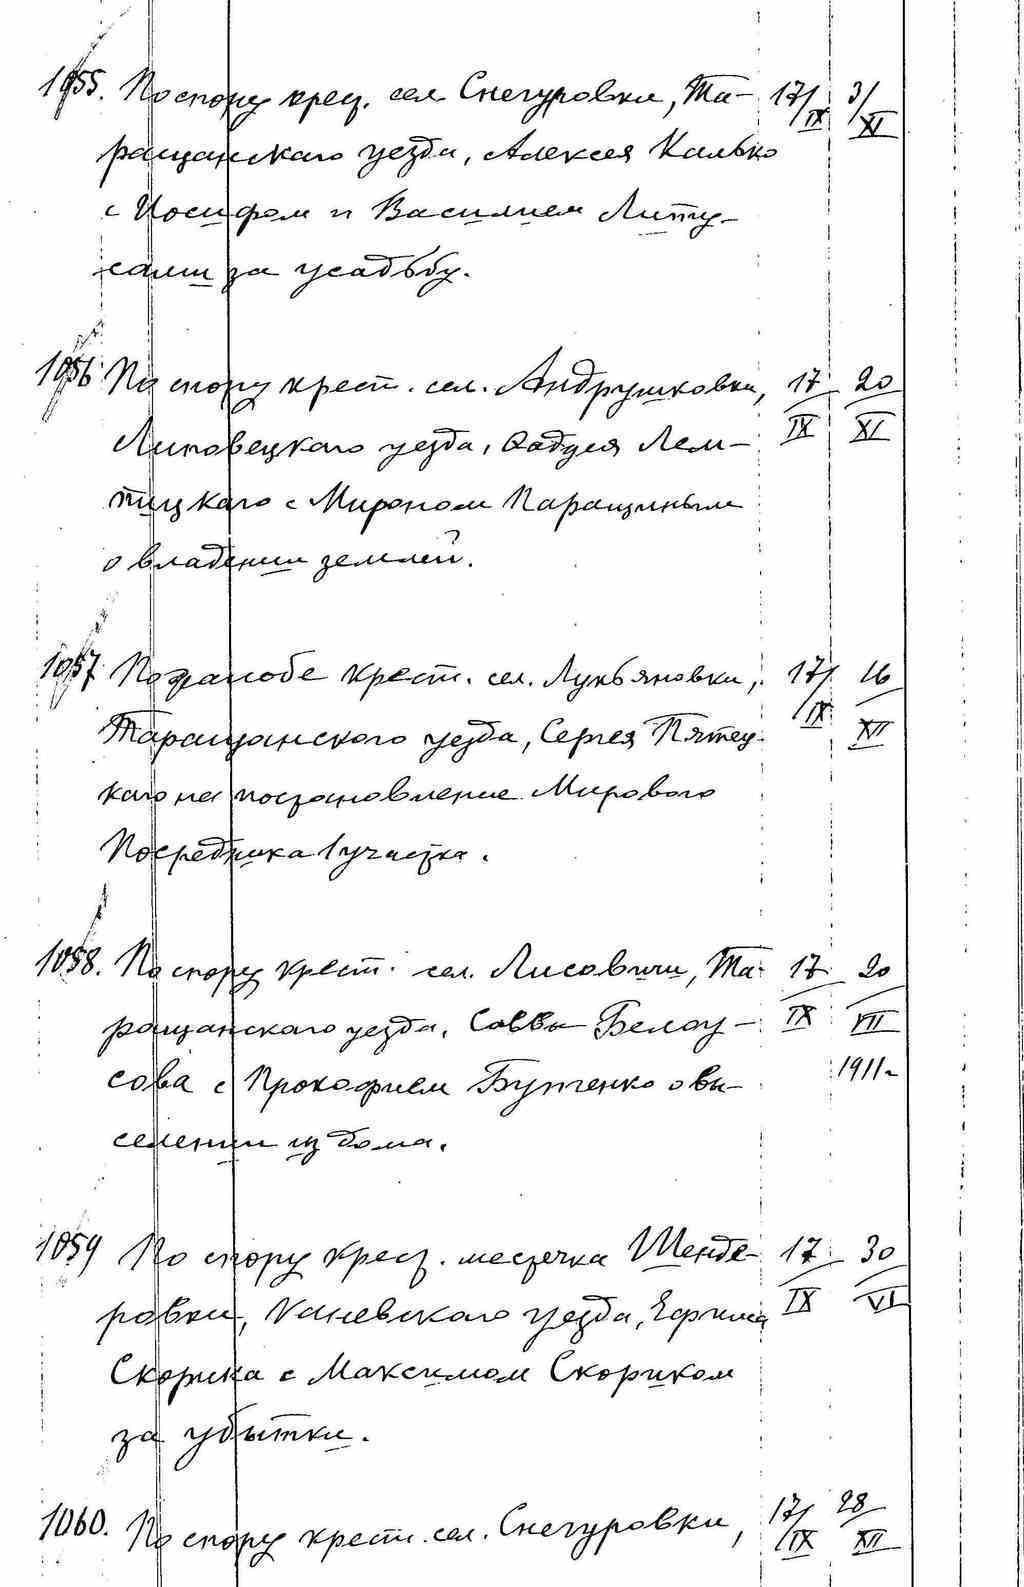 1055. По спору крест. сел Снегуровки, Та- 17/IX 3/XI
ращанскаго уезда, Алексея Калько
с Иосифом и Василием Литу-
сами за усадьбу.
1056 По спору крест. сел. Андрушковки, 17/IX 20/XI
Липовецкаго уезда, Фадея Лем-
тицкаго с Мироном Паращиным
о владении землей.
1057 По жалобе крест. сел. Лукьяновки, 17/IX 16/XII
Таращанского уезда, Сергея Пятец-
каго на постановление Мирового
Посредника 1 участка.
1058. По спору крест. сел. Лисовичи, Та- 17/IX 20/VII
ращанскаго уезда, Саввы Белоу-
сова с Прокофием Бутченко о вы- 1911 г
селении из дома.
1059 По спору крест. местечка Шенде- 17/IX 30/VI
ровки, Каневскаго уезда, Ефима
Скорика с Максимом Скориком
за убытки.
1060. По спору крест. сел. Снегуровки, 17/IX 28/XII